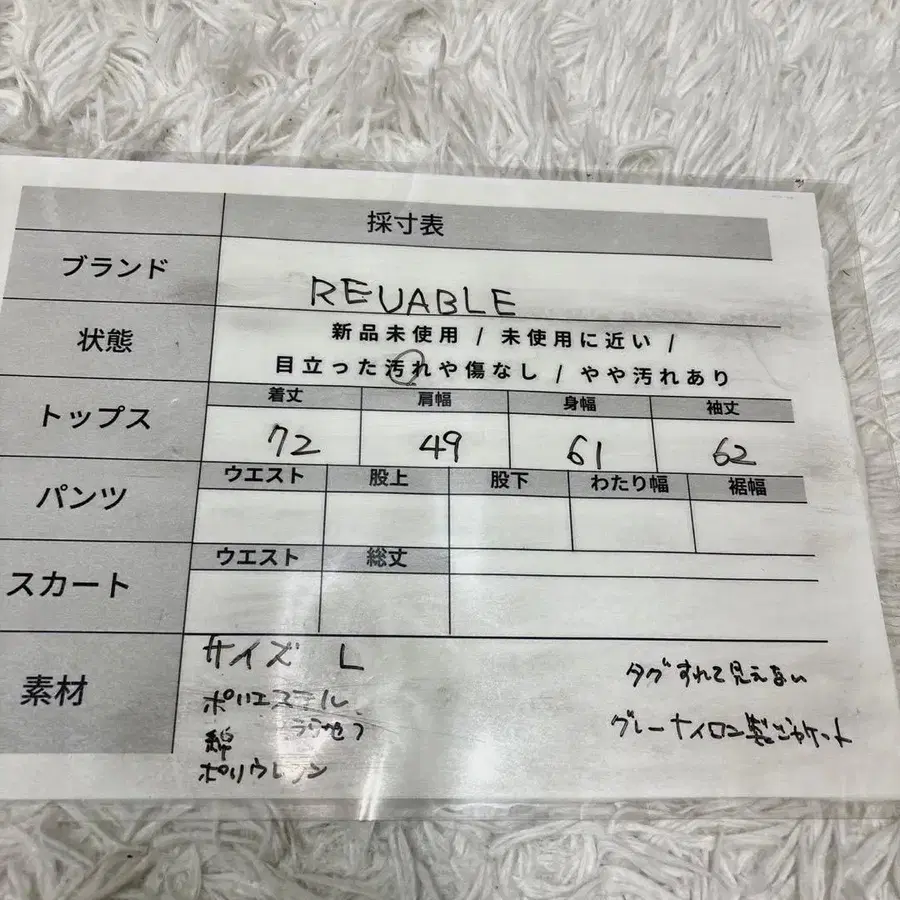 採寸表
ブランド REUABLE
状態 新品未使用 / 未使用に近い /
目立った汚れや傷なし / やや汚れあり
トップス 着丈 肩幅 身幅 袖丈
72 49 61 62
パンツ ウエスト 股上 股下 わたり幅 裾幅
スカート ウエスト 総丈
素材 サイズ L
ポリエステル
綿
ポリウレタン
タグすれて見えない
グレーナイロン製ジャケット